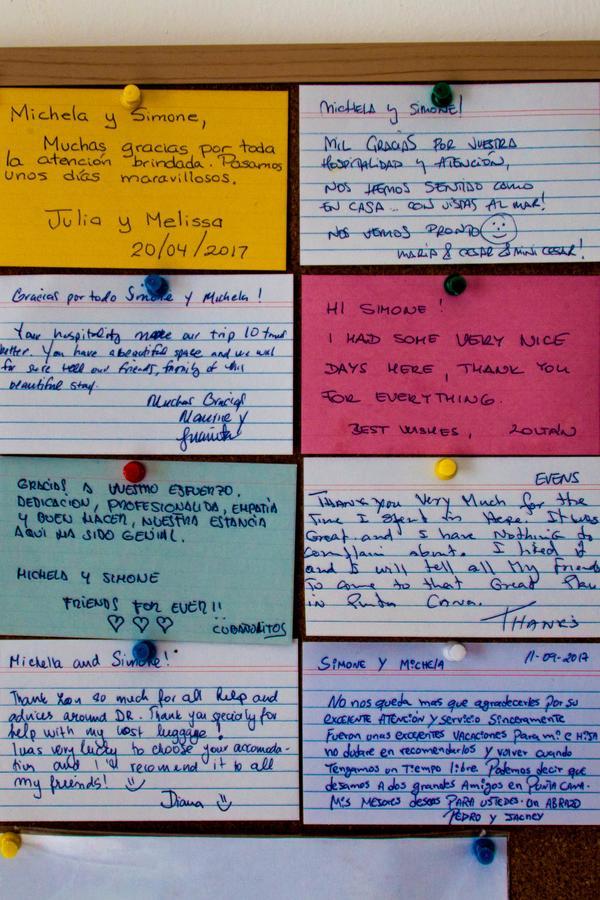 Michela y Simone,
Muchas gracias por toda
la atención brindada. Pasamos
unos días maravillosos.
Julia y Melissa
20/04/2017
MICHELA y SIMONE!
MIL GRACIAS POR VUESTRA
HOSPITALIDAD Y ATENCIÓN,
NOS HEMOS SENTIDO COMO
EN CASA... CON VISTAS AL MAR!
NOS VEMOS PRONTO
MARÍA & CESAR & MINI CESAR!
Gracias por todo Simone y Michela!
Your hospitality made our trip 10 times
better. You have a beautiful space and we will
for sure tell our friends, family of this
beautiful stay.
Muchas Gracias
y
Juanita
HI SIMONE!
I HAD SOME VERY NICE
DAYS HERE, THANK YOU
FOR EVERYTHING.
BEST WISHES, ZOLTÁN
GRACIAS A VUESTRO ESFUERZO,
DEDICACIÓN, PROFESIONALIDA, EMPATÍA
Y BUEN HACER, NUESTRA ESTANCIA
AQUÍ HA SIDO GENIAL.
MICHELA Y SIMONE
FRIENDS FOR EVER!!
CUBANQUITOS
EVENS
Thank you Very Much for the
Time I spent in Here. It was
Great and I have Nothing to
complain about. I liked it
and I will tell all My Friends
To come to that Great Place
in Punta Cana.
THANKS
Michella and Simone!
Thank you so much for all help and
advices around DR. Thank you specialy for
help with my lost luggage!
I was very lucky to choose your accomoda-
tion and I'll recomend it to all
my friends!
Diana
SIMONE Y MICHELA 11-09-2017
No nos queda mas que agradecerles por su
EXCELENTE ATENCIÓN y servicio sinceramente
Fueron unas excelentes VACACIONES Para mi e HIJA
no dudare en recomendarlos y volver cuando
Tengamos un Tiempo libre. Podemos decir que
dejamos a dos grandes Amigos en PUNTA CANA.
MIS MEJORES deseos PARA USTEDES. Un ABRAZO
PEDRO y JACNEY